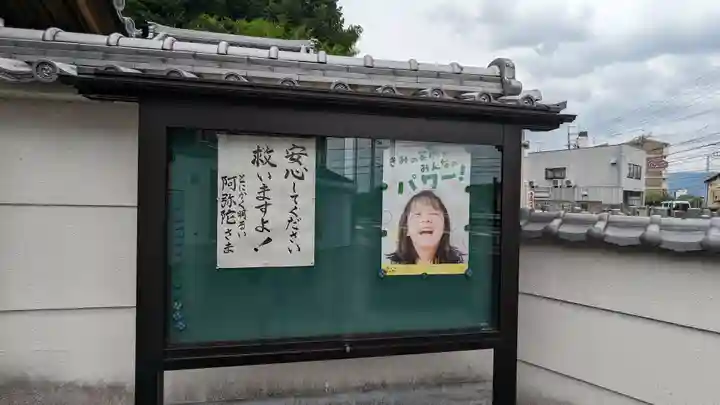 安心してください
救いますよ！
とにかく明るい
阿弥陀さま
きみの笑顔が
みんなの
パワー！